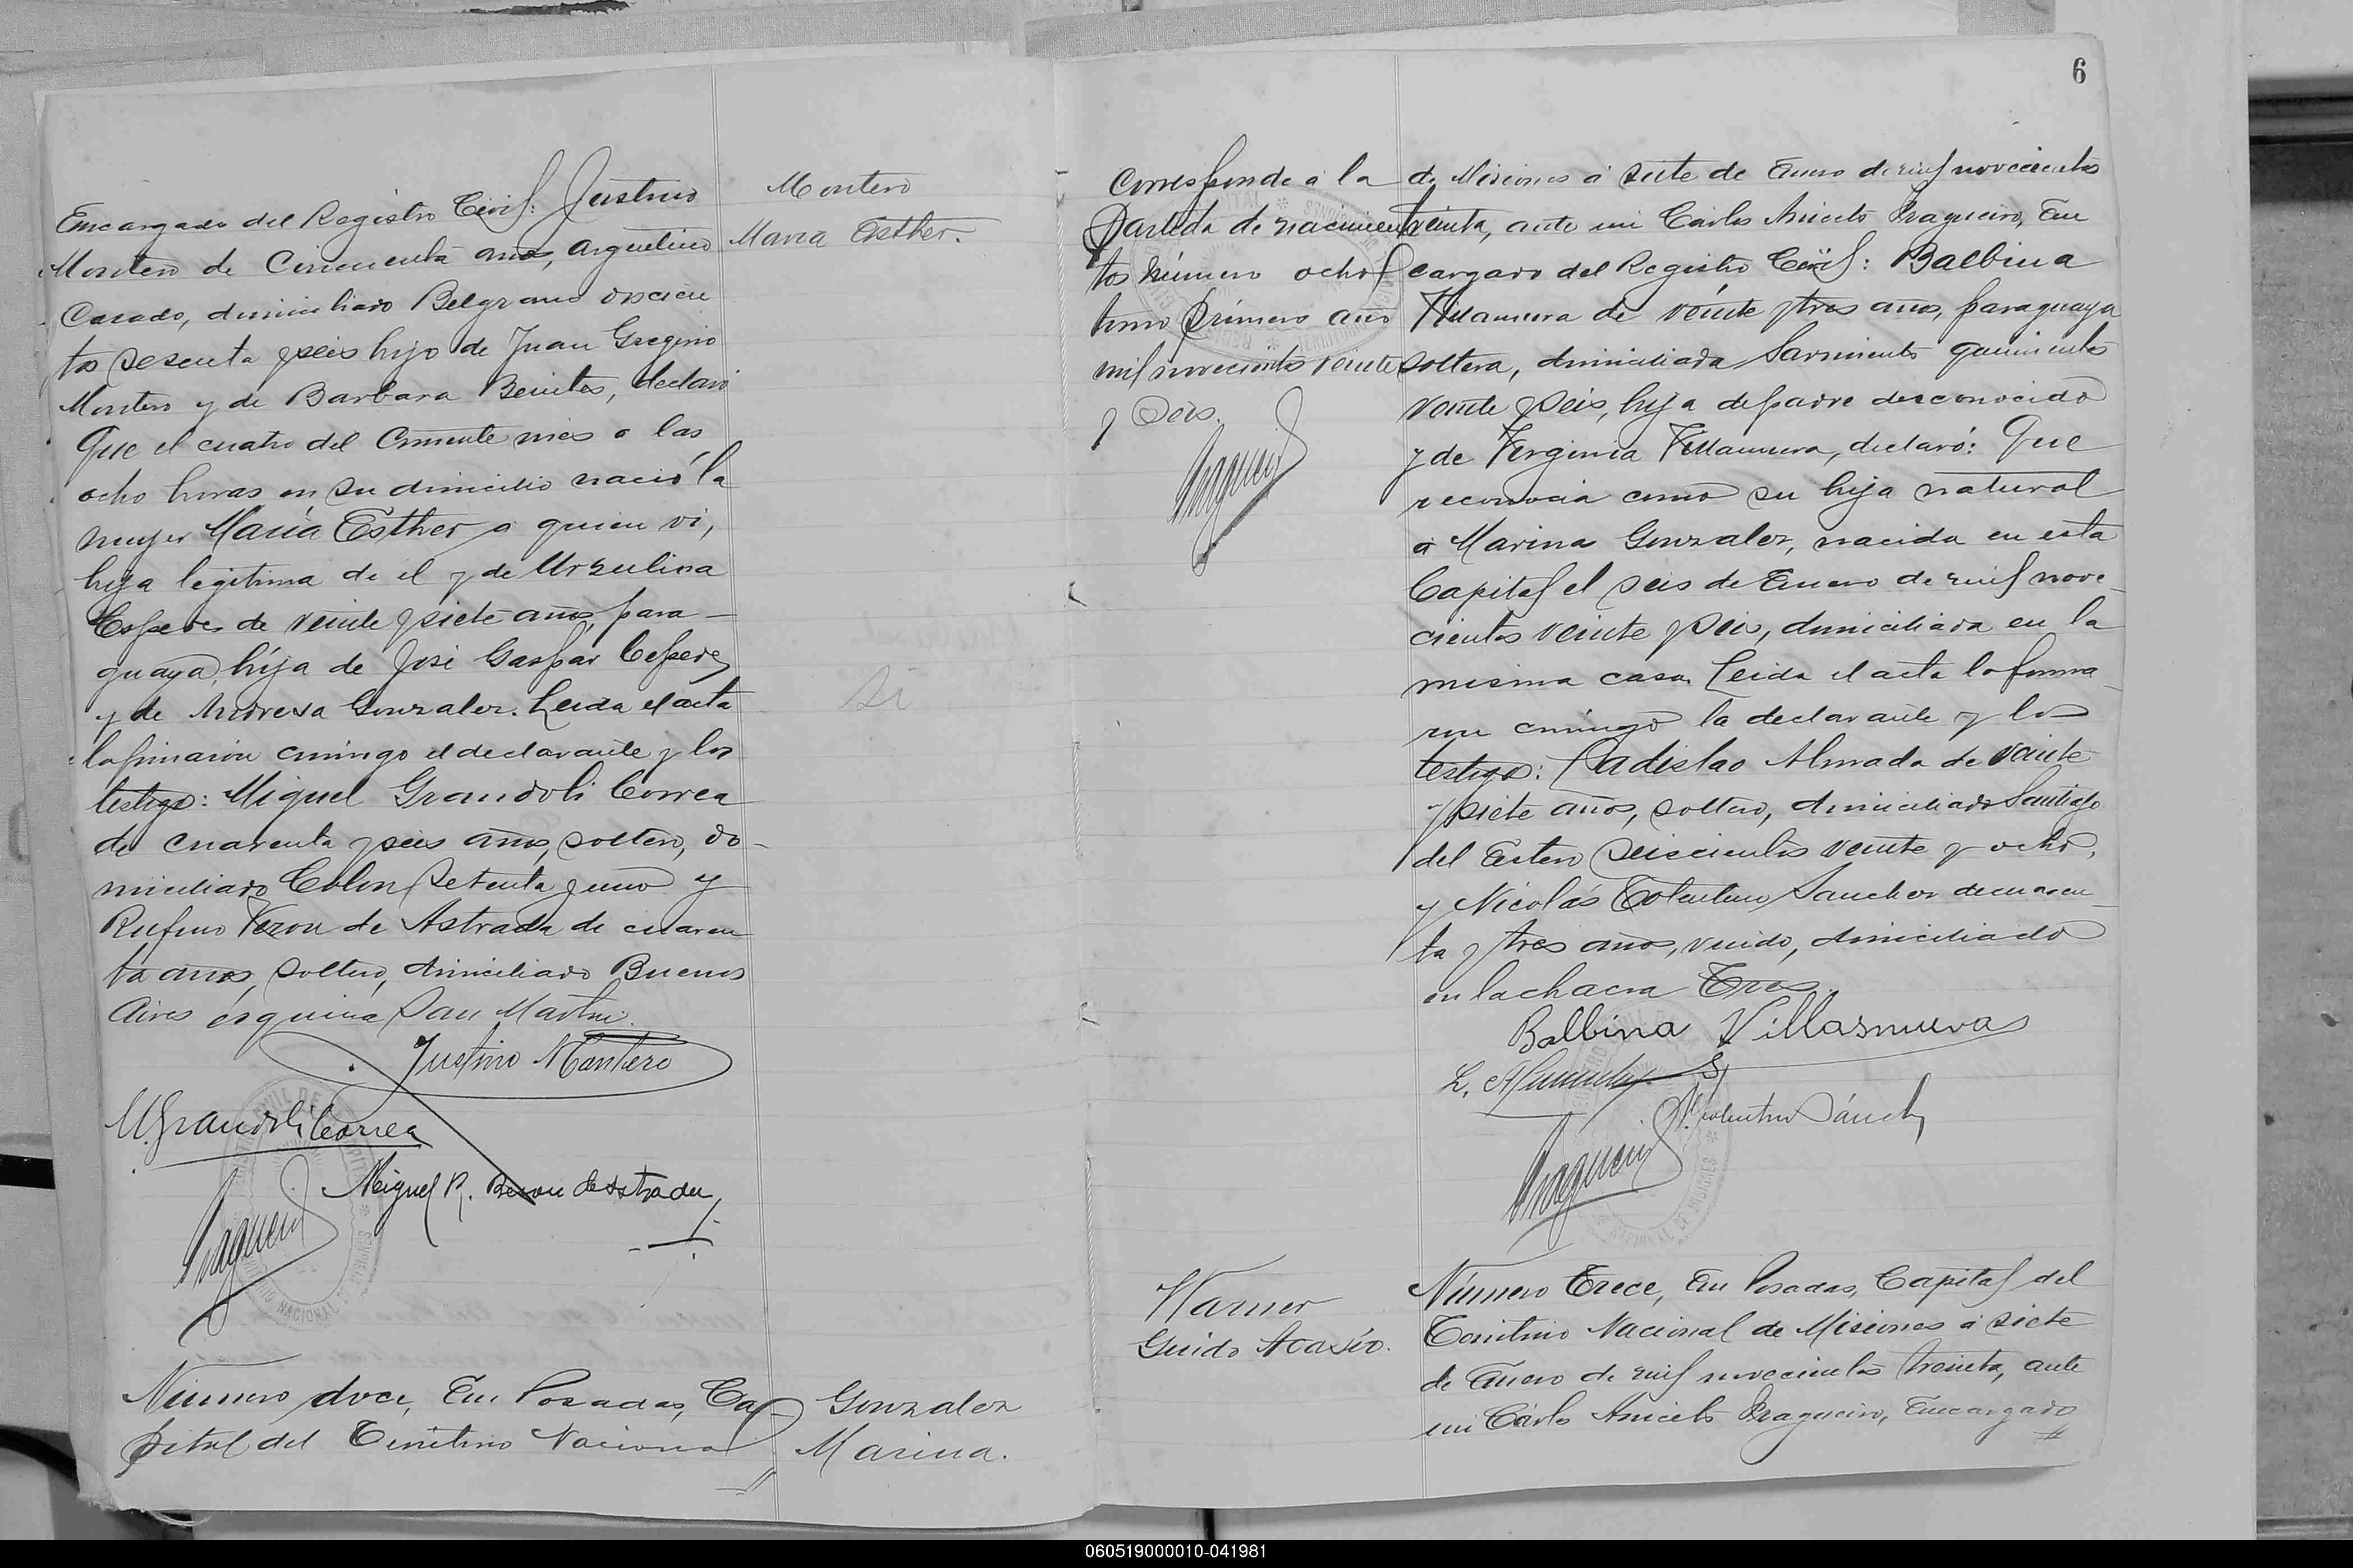 Encargado del Registro Civil: Justino
Montero de Cincuenta años, argentino
Casado, domiciliado Belgrano doscien
tos sesenta y seis hijo de Juan Gregorio
Montero y de Barbara Benites, declaró
Que el cuatro del corriente mes a las
ocho horas en su domicilio nació la
mujer María Esther a quien vi,
hija legítima de el y de Urzulina
Cespedes de veinte y siete años, para-
guaya, hija de José Gaspar Cespedes
y de Andresa Gonzalez. Leida el acta
la firmaron conmigo el declarante y los
testigos: Miguel Grandoli Correa
de cuarenta y seis años, soltero, do-
miciliado Colon setenta y uno y
Rufino Veron de Astrada de cuaren
ta años, soltero, domiciliado Buenos
Aires esquina San Martin.
Justino Montero
M. Grandoli Correa
Miguel R. Beron de Astrada
Número doce, En Posadas, Ca-
pital del Territorio Nacional
Montero
Maria Esther.
Si
Gonzalez
Marina.
6
Corresponde a la
Partida de nacimien
tos número ocho
tomo primero año
mil novecientos veinte
y seis.
de Misiones á siete de Enero de mil novecientos
treinta, ante mi Cárlos Aniceto Fragueiro, En
cargado del Registro Civil: Balbina
Villanueva de veinte y tres años, paraguaya
soltera, domiciliada Sarmiento quinientos
veinte y seis, hija de padre desconocido
y de Virginia Villanueva, declaró: Que
reconocia como su hija natural
a Marina Gonzalez, nacida en esta
Capital el seis de Enero de mil nove-
cientos veinte y seis, domiciliada en la
misma casa. Leida el acta la firma-
ron conmigo la declarante y los
testigos: Ladislao Almada de veinte
y siete años, soltero, domiciliado Santiago
del Estero seiscientos veinte y ocho,
y Nicolás Tolentino Sanchez de cuaren-
ta y tres años, viudo, domiciliado
en la chacra Tres.
Balbina Villasnueva
L. Almada
N. Tolentino Sánchez
Warner
Guido Acasio.
Número Trece, En Posadas, Capital del
Territorio Nacional de Misiones á siete
de Enero de mil novecientos treinta, ante
mi Cárlos Aniceto Fragueiro, Encargado
060519000010-041981